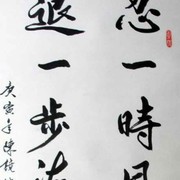 忍一時風
退一步海
庚寅年陳